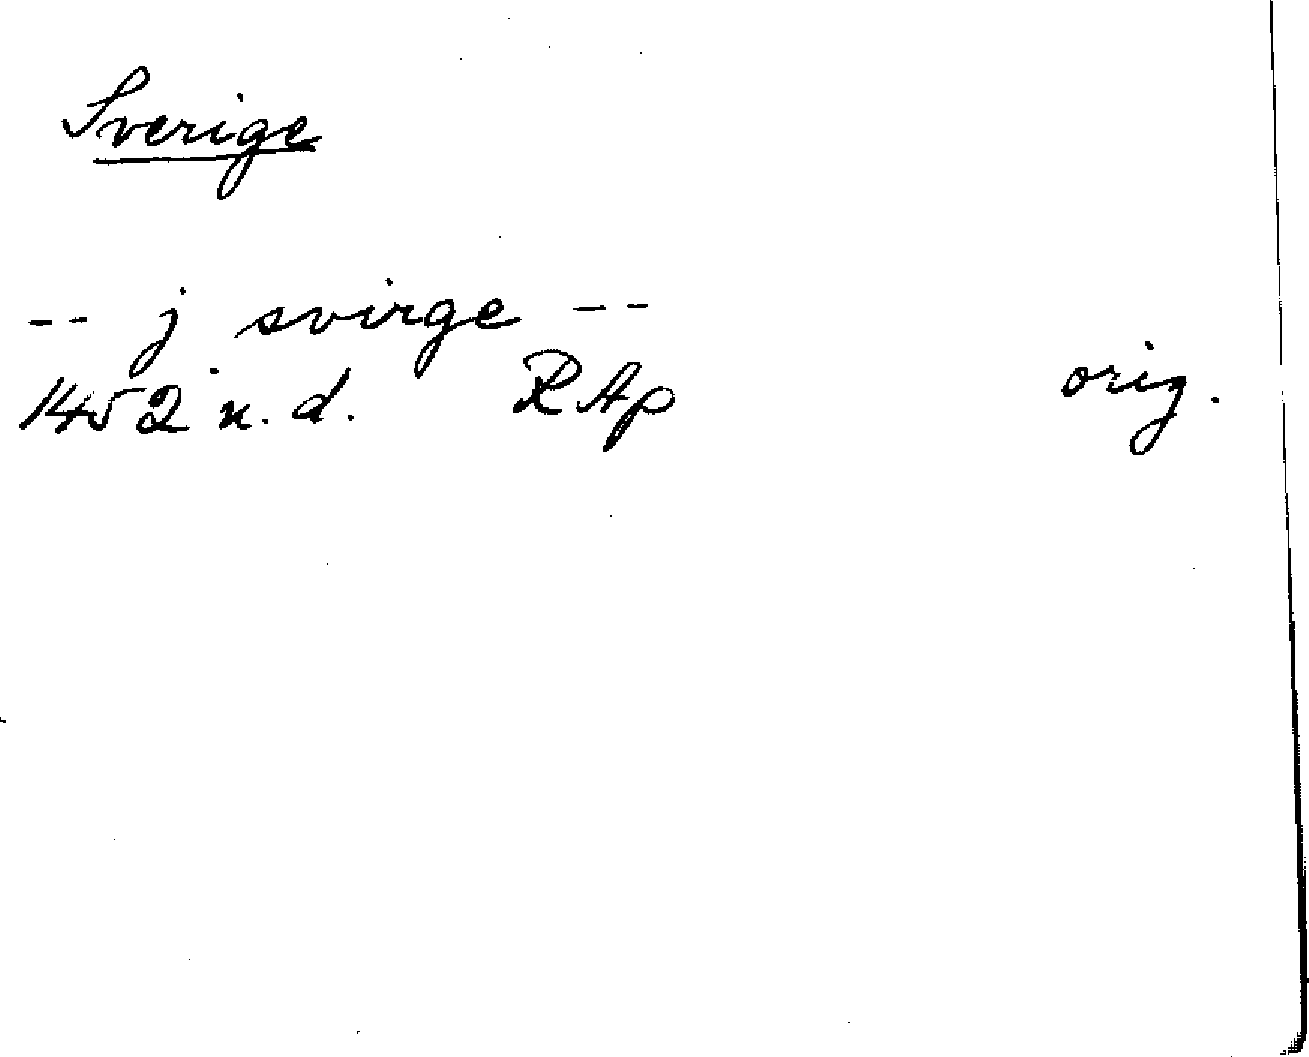 Sverige
-- j svirge --
1452 n. d. RAp orig.